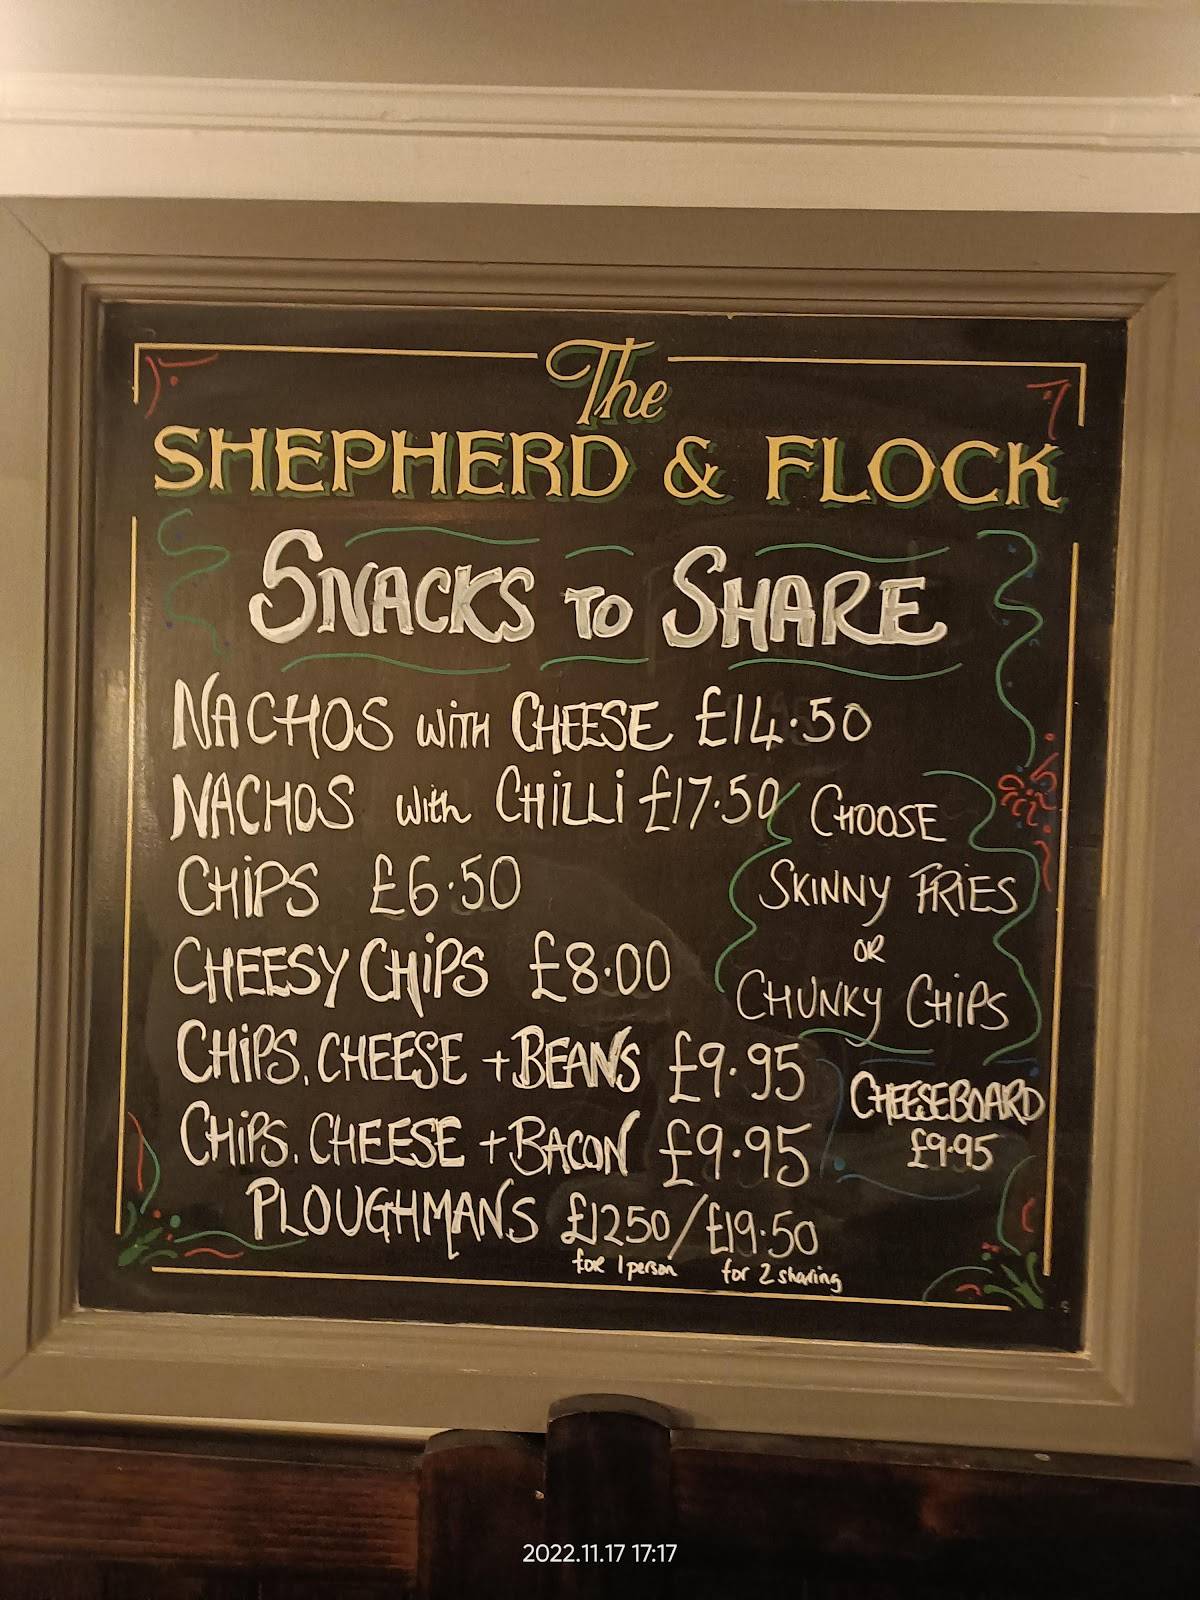 The
SHEPHERD & FLOCK
SNACKS TO SHARE
NACHOS with CHEESE £14.50
NACHOS with CHILLI £17.50
CHIPS £6.50
CHEESY CHIPS £8.00
CHIPS. CHEESE + BEANS £9.95
CHIPS. CHEESE + BACON £9.95
PLOUGHMANS £1250/£19.50
for 1 person for 2 sharing
CHOOSE
SKINNY FRIES
OR
CHUNKY CHIPS
CHEESEBOARD
£9.95
2022.11.17 17:17